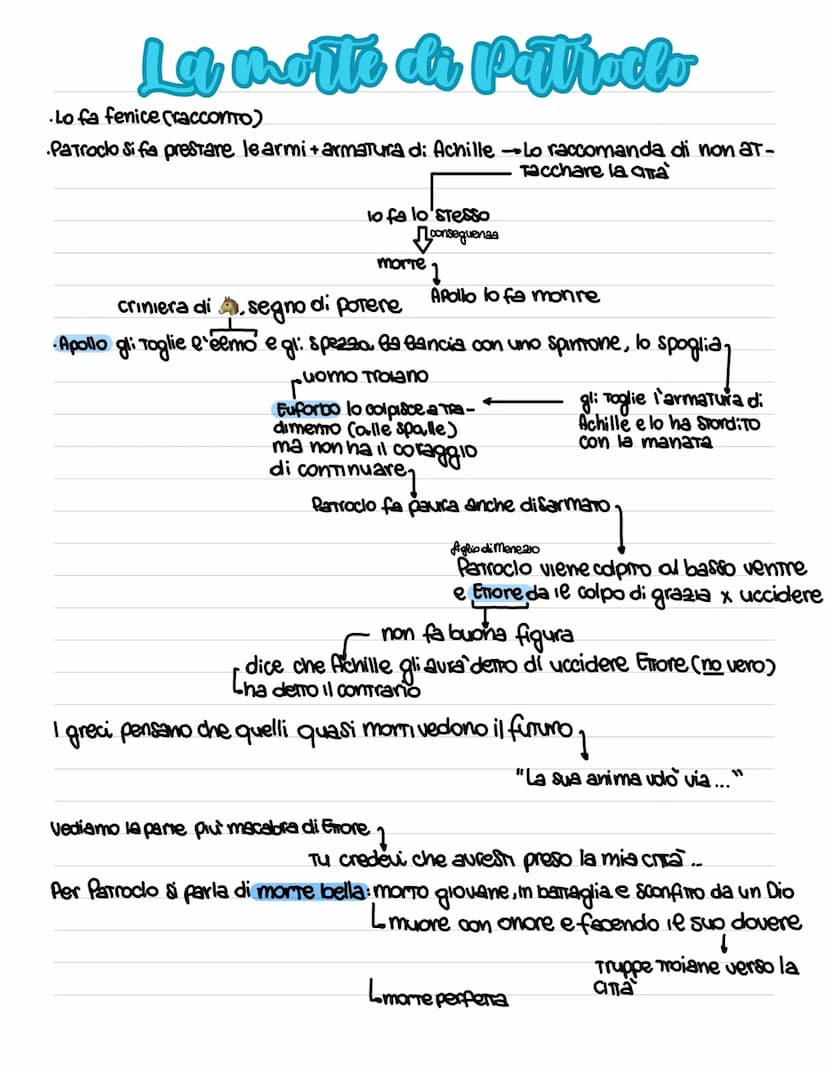 La morte di Patroclo
·Lo fa fenice (racconto)
·Patroclo si fa prestare le armi + armatura di Achille → Lo raccomanda di non at-
tacchare la città
lo fa lo stesso
conseguenza
morte
Apollo lo fa morire
criniera di 🐴, segno di potere
·Apollo gli toglie l'elmo e gli spezza la lancia con uno spintone, lo spoglia
uomo troiano
Euforbo lo colpisce a tra-
dimento (alle spalle)
ma non ha il coraggio
di continuare
gli toglie l'armatura di
Achille e lo ha stordito
con la manata
Patroclo fa paura anche disarmato
figlio di Menezio
Patroclo viene colpito al basso ventre
e Ettore da il colpo di grazia x uccidere
non fa buona figura
dice che Achille gli avra' detto di uccidere Ettore (no vero)
ha detto il contrario
I greci pensano che quelli quasi morti vedono il futuro
"La sua anima volò via..."
Vediamo la parte più macabra di Ettore
Tu credevi che avresti preso la mia città...
Per Patroclo si parla di morte bella: morto giovane, in battaglia e sconfitto da un Dio
muore con onore e facendo il suo dovere
truppe troiane verso la
città
morte perfetta